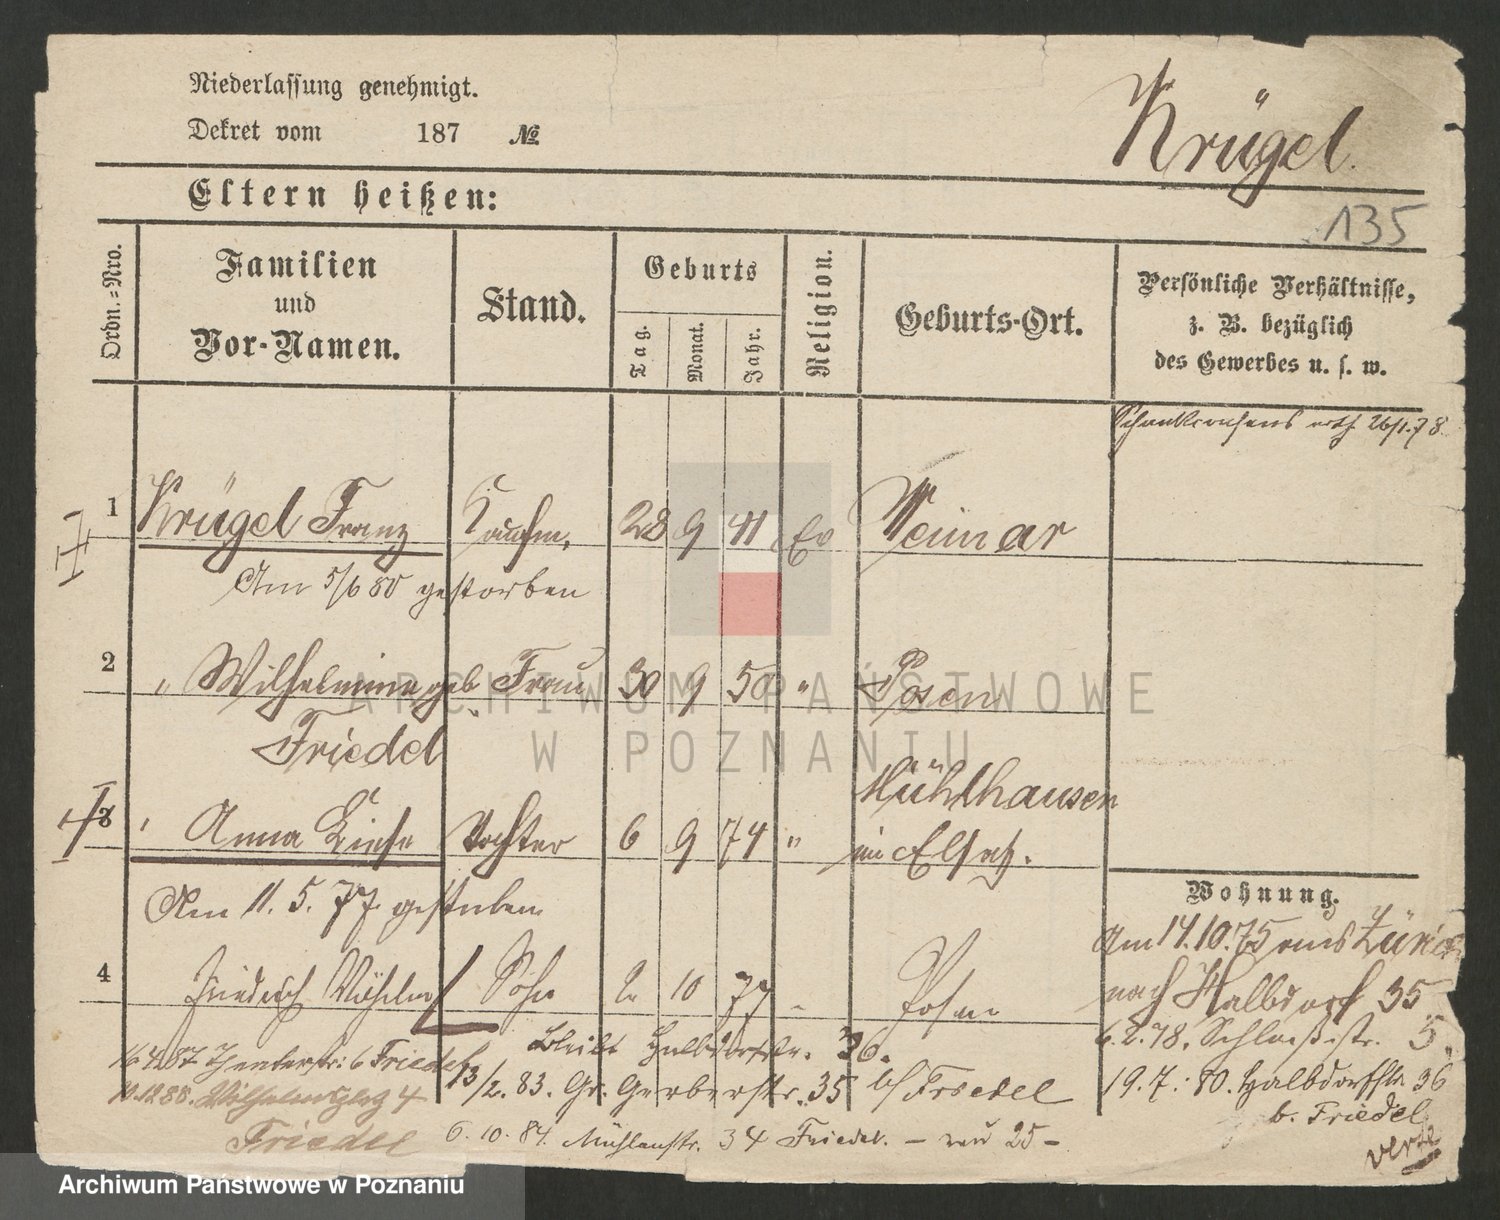 Niederlassung genehmigt.
Dekret vom 187 №
Krügel.
Eltern heißen:
135
Ordn.=Nro.
Familien
und
Vor-Namen.
Stand.
Geburts
Tag.
Monat.
Jahr.
Religion.
Geburts-Ort.
Persönliche Verhältnisse,
z. B. bezüglich
des Gewerbes u. s. w.
26/1.78
1 Krügel Franz Kaufm. 28 9 41 Ev Weimar
Am 5/6 80 gestorben
2 " Wilhelmine geb Frau 30 9 50 " Posen
Friedel
3 " Anna Liese Tochter 6 9 74 " Mühlhausen
im Elsaß.
Am 11. 5. 77 gestorben
Wohnung.
Am 14.10.75 aus Zürich
nach Halbdorf 35
4 Friedrich Wilhelm Sohn 2 10 77 Posen
6.2.78. Schloßstr. 5.
Bleibt Halbdorfstr. 36.
19.7.80. Halbdorfstr 36
b. Friedel
16 4 87 Theaterstr: 6 Friedel
13/2. 83. Gr. Gerberstr. 35 b/ Friedel
10.12.88. Wilhelmsplatz 4
Friedel
6. 10. 84. Mühlenstr. 34 Friedel. — 25 —
verte
ARCHIWUM PAŃSTWOWE
W POZNANIU
Archiwum Państwowe w Poznaniu